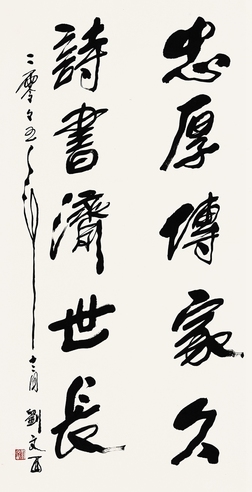 忠厚傳家久
詩書濟世長
二零零五年
十二月
劉文西